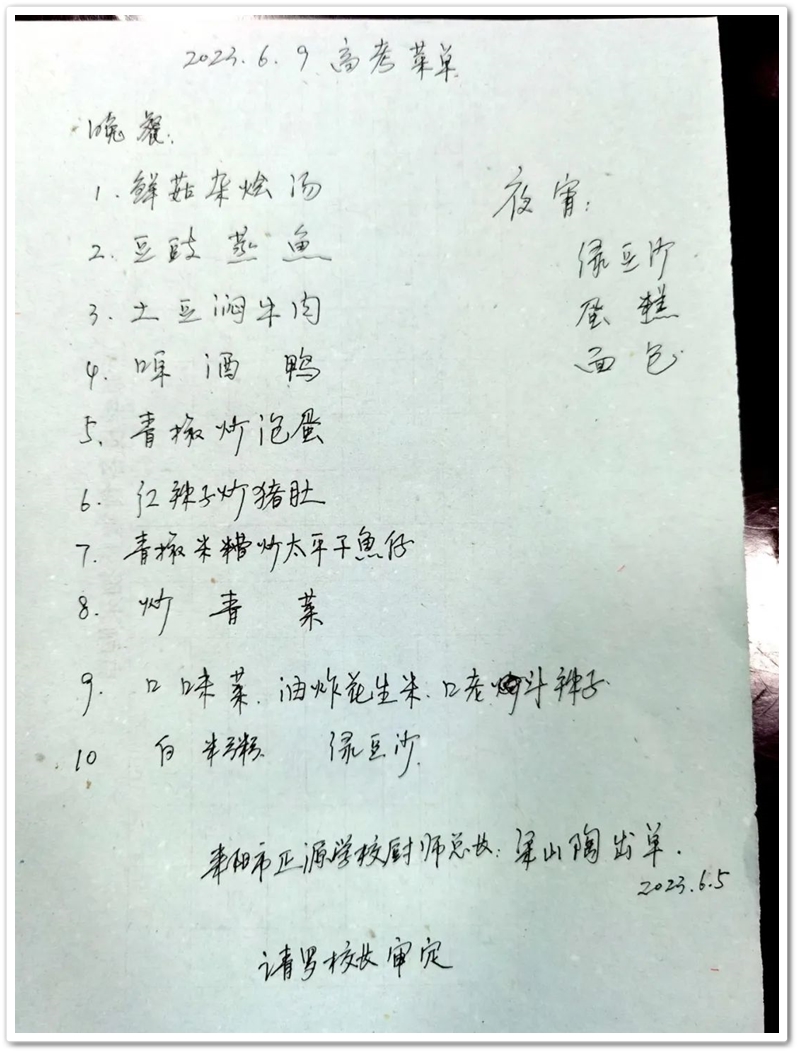 2023.6.9 高考菜单
晚餐:
1. 鲜菇杂烩汤
2. 豆豉蒸鱼
3. 土豆焖牛肉
4. 啤酒鸭
5. 青椒炒泡蛋
6. 红辣子炒猪肚
7. 青椒米糟炒太平子魚仔
8. 炒青菜
9. 口味菜.油炸花生米.口老斗辣子
10 白米粥 绿豆沙.
夜宵:
绿豆沙
蛋糕
面包
耒阳市正源学校厨师总长:梁山陶出单.
2023.6.5
请罗校长审定